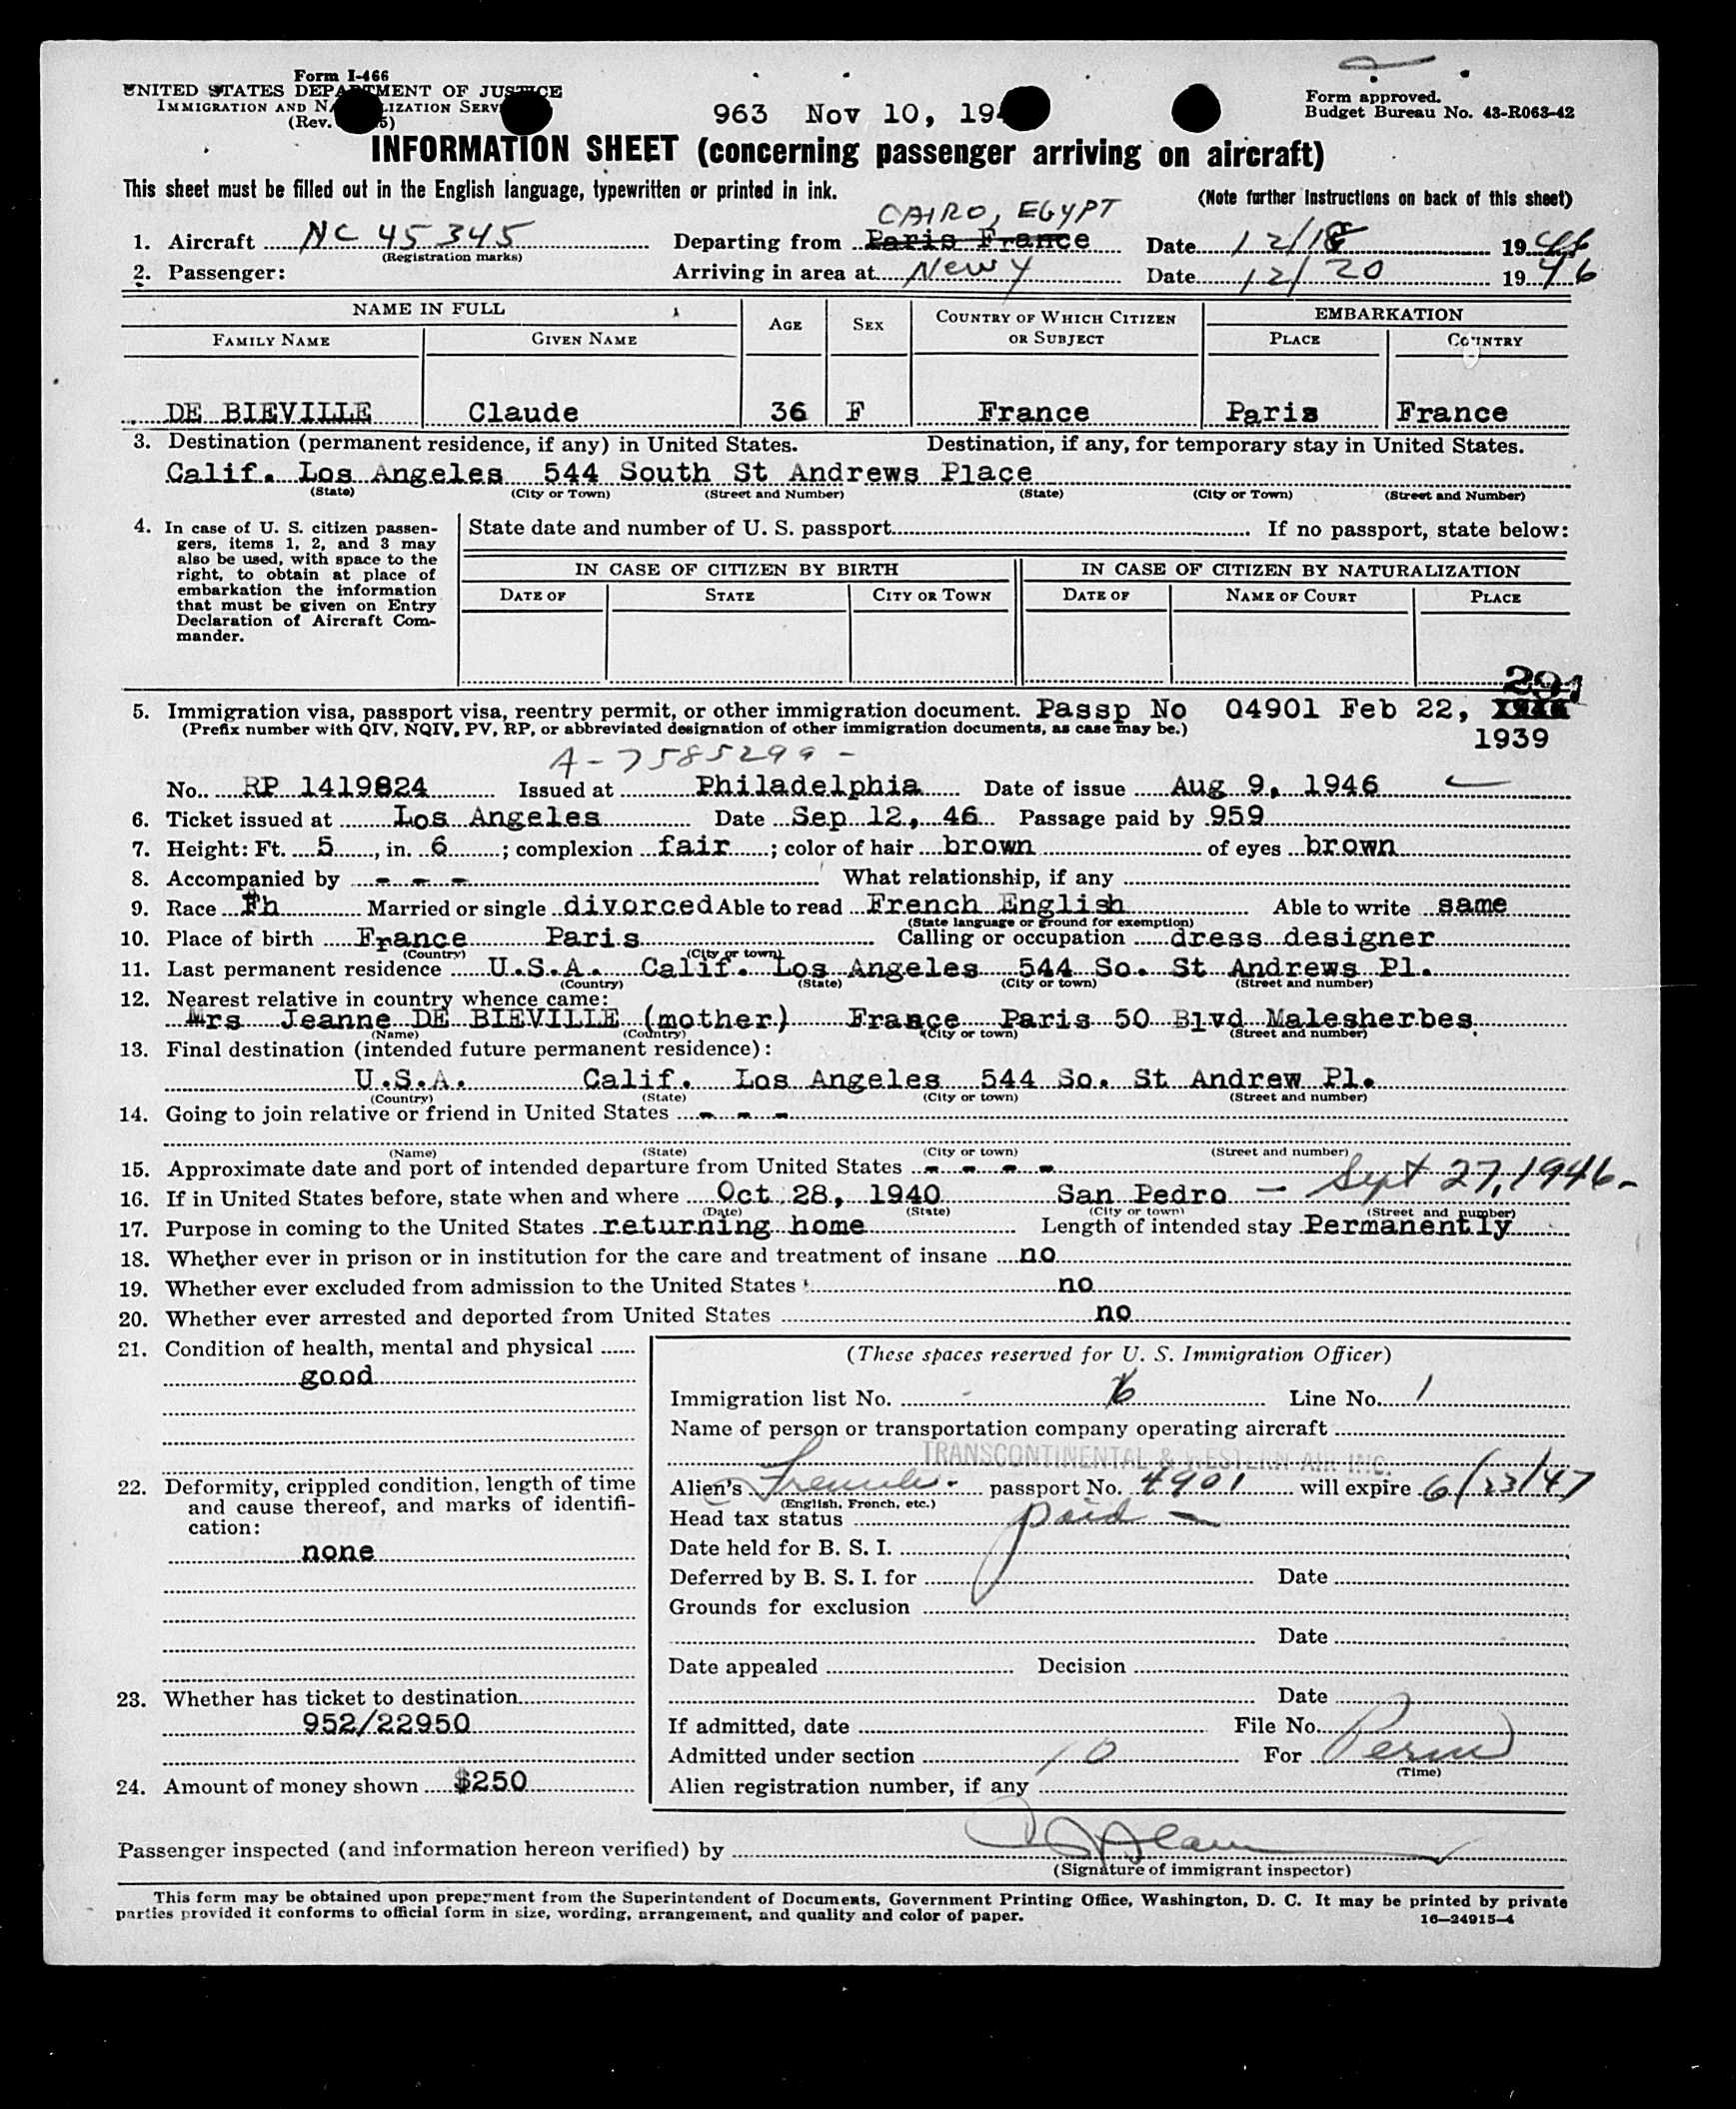 Form I-466
UNITED STATES DEPARTMENT OF JUSTICE
IMMIGRATION AND NATURALIZATION SERV
(Rev. 5)
963 Nov 10, 19
Form approved.
Budget Bureau No. 43-R063-42
INFORMATION SHEET (concerning passenger arriving on aircraft)
This sheet must be filled out in the English language, typewritten or printed in ink.
(Note further instructions on back of this sheet)
CAIRO, EGYPT
1. Aircraft NC 45345 Departing from Paris France Date 12/18 1946
(Registration marks)
2. Passenger: Arriving in area at New Y Date 12/20 1946
NAME IN FULL AGE SEX COUNTRY OF WHICH CITIZEN OR SUBJECT EMBARKATION
FAMILY NAME GIVEN NAME PLACE COUNTRY
DE BIEVILLE Claude 36 F France Paris France
3. Destination (permanent residence, if any) in United States. Destination, if any, for temporary stay in United States.
Calif. Los Angeles 544 South St Andrews Place
(State) (City or Town) (Street and Number) (State) (City or Town) (Street and Number)
4. In case of U. S. citizen passen-
gers, items 1, 2, and 3 may
also be used, with space to the
right, to obtain at place of
embarkation the information
that must be given on Entry
Declaration of Aircraft Com-
mander.
State date and number of U. S. passport If no passport, state below:
IN CASE OF CITIZEN BY BIRTH IN CASE OF CITIZEN BY NATURALIZATION
DATE OF STATE CITY OR TOWN DATE OF NAME OF COURT PLACE
291
5. Immigration visa, passport visa, reentry permit, or other immigration document. Passp No 04901 Feb 22,
(Prefix number with QIV, NQIV, PV, RP, or abbreviated designation of other immigration documents, as case may be.) 1939
A-7585299 -
No. RP 1419824 Issued at Philadelphia Date of issue Aug 9, 1946
6. Ticket issued at Los Angeles Date Sep 12, 46 Passage paid by 959
7. Height: Ft. 5, in. 6; complexion fair; color of hair brown of eyes brown
8. Accompanied by - - - What relationship, if any
9. Race Fh Married or single divorced Able to read French English Able to write same
(State language or ground for exemption)
10. Place of birth France Paris Calling or occupation dress designer
(Country) (City or town)
11. Last permanent residence U.S.A. Calif. Los Angeles 544 So. St Andrews Pl.
(Country) (State) (City or town) (Street and number)
12. Nearest relative in country whence came:
Mrs Jeanne DE BIEVILLE (mother) France Paris 50 Blvd Malesherbes
(Name) (Country) (City or town) (Street and number)
13. Final destination (intended future permanent residence):
U.S.A. Calif. Los Angeles 544 So. St Andrew Pl.
(Country) (State) (City or town) (Street and number)
14. Going to join relative or friend in United States - - -
(Name) (State) (City or town) (Street and number)
15. Approximate date and port of intended departure from United States - - - -
16. If in United States before, state when and where Oct 28, 1940 San Pedro — Sept 27, 1946-
(Date) (State) (City or town) (Street and number)
17. Purpose in coming to the United States returning home Length of intended stay Permanently
18. Whether ever in prison or in institution for the care and treatment of insane no
19. Whether ever excluded from admission to the United States no
20. Whether ever arrested and deported from United States no
21. Condition of health, mental and physical
good
22. Deformity, crippled condition, length of time
and cause thereof, and marks of identifi-
cation:
none
23. Whether has ticket to destination
952/22950
24. Amount of money shown $250
(These spaces reserved for U. S. Immigration Officer)
Immigration list No. 6 Line No. 1
Name of person or transportation company operating aircraft
TRANSCONTINENTAL & WESTERN AIR INC.
Alien's French passport No. 4901 will expire 6/23/47
(English, French, etc.)
Head tax status paid -
Date held for B. S. I.
Deferred by B. S. I. for Date
Grounds for exclusion
Date
Date appealed Decision
Date
If admitted, date File No.
Admitted under section 10 For Perm
(Time)
Alien registration number, if any
Passenger inspected (and information hereon verified) by
(Signature of immigrant inspector)
This form may be obtained upon prepayment from the Superintendent of Documents, Government Printing Office, Washington, D. C. It may be printed by private
parties provided it conforms to official form in size, wording, arrangement, and quality and color of paper.
16—24915-4